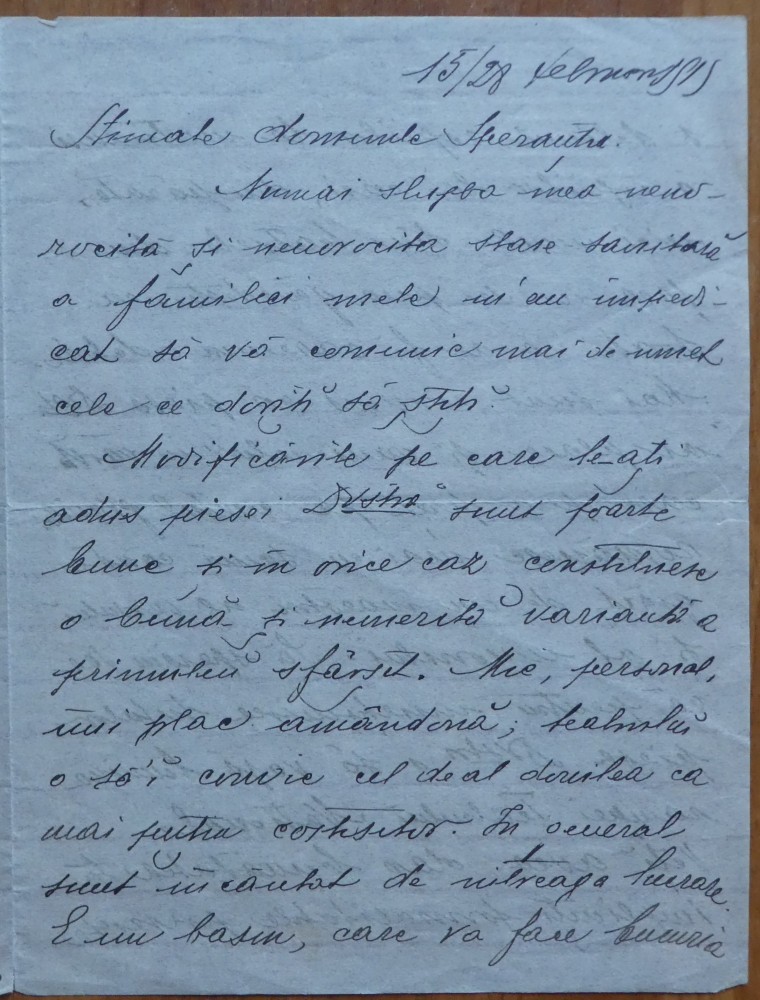 15/28 februar 1915
Stimate domnule Speranția.
Numai slujba mea neno-
rocită și nenorocita stare sanitară
a familiei mele m'au împedi-
cat să vă comunic mai de mult
cele ce doriți să știți.
Modificările pe care le-ați
adus piesei sunt foarte
bune și în orice caz constituesc
o bună și nemerită variantă a
primului sfârșit. Mie, personal,
îmi plac amândouă; teatrului
o să'i convie cel de al doilea ca
mai puțin costisitor. În general
sunt încântat de întreaga lucrare.
E un basm, care va face bucuria